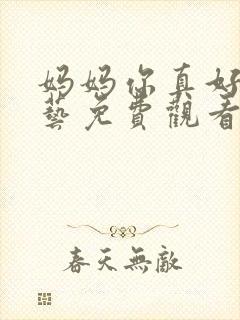 妈妈你真好
藝免費觀看
春天無敵